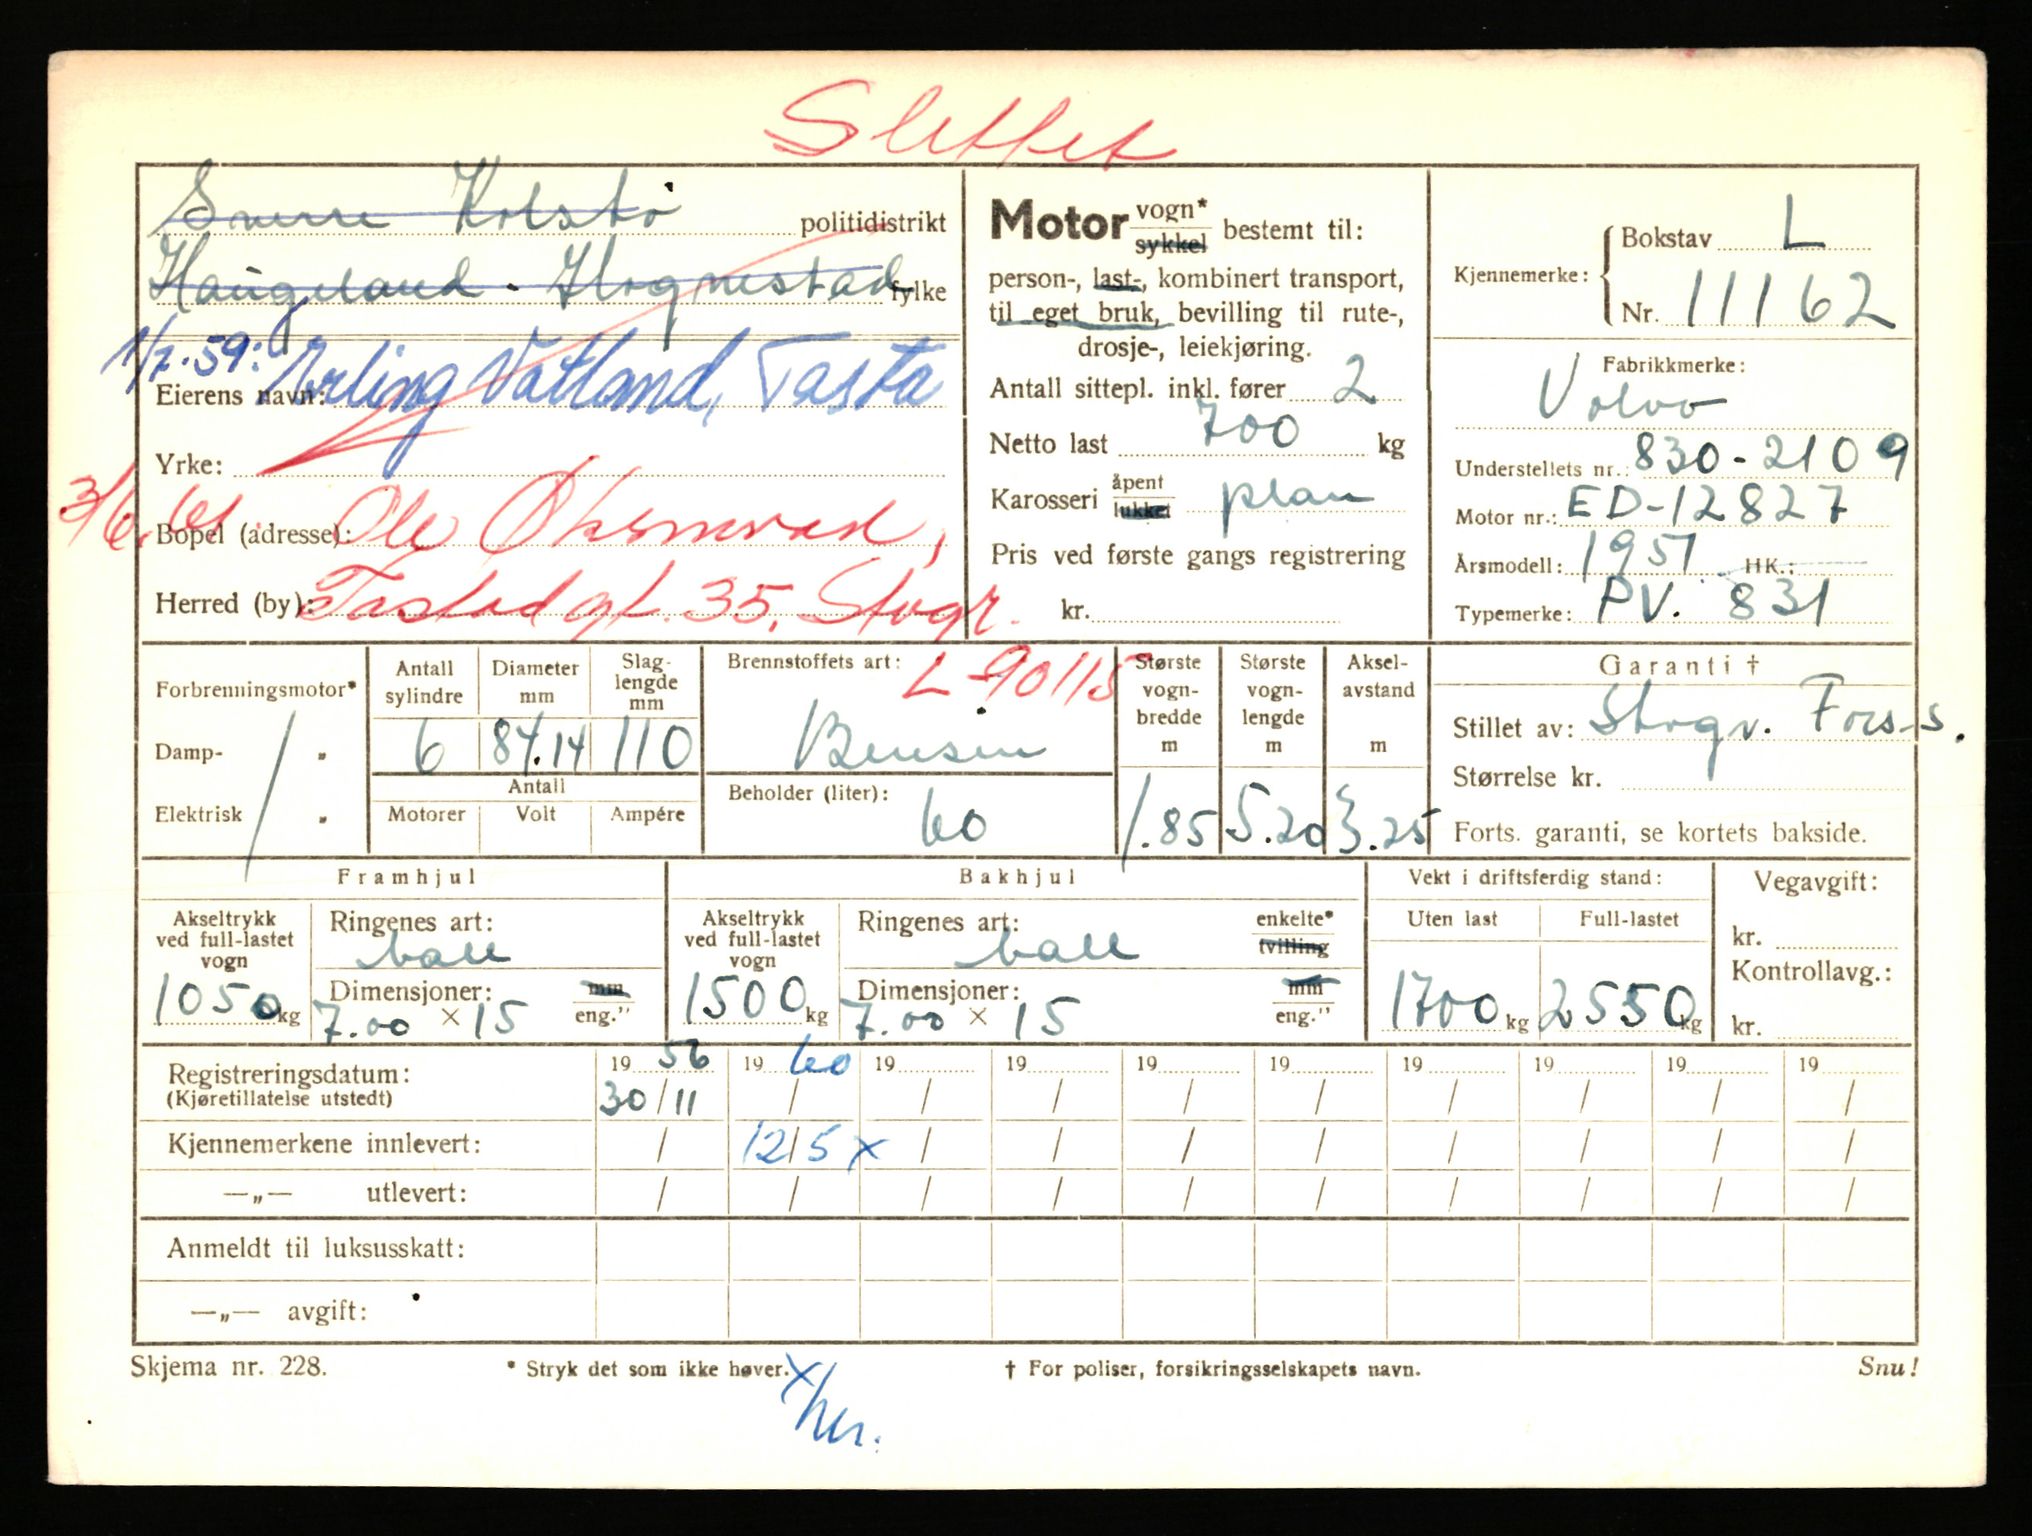 Slettet
Sverre Kolstø politidistrikt
Haugeland - Hognestad fylke
1/7.59: Erling Vatland, Tasta
Eierens navn:
Yrke:
3/6.61. Ole Øksnevad,
Bopel (adresse):
Herred (by): Tastadgt. 35, Stvgr.
Motor vogn* sykkel bestemt til:
person-, last-, kombinert transport,
til eget bruk, bevilling til rute-,
drosje-, leiekjøring.
Antall sittepl. inkl. fører 2
Netto last 700 kg
Karosseri åpent lukket plan
Pris ved første gangs registrering
kr.
Kjennemerke: Bokstav L
Nr. 11162
Fabrikkmerke:
Volvo
Understellets nr.: 830-2109
Motor nr.: ED-12827
Årsmodell: 1951 HK.:
Typemerke: PV. 831
Forbrenningsmotor*
Damp- "
Elektrisk "
Antall sylindre 6
Diameter mm 84.14
Slag-lengde mm 110
Antall
Motorer Volt Ampére
Brennstoffets art: L-90115
Bensin
Beholder (liter):
60
Største vogn-bredde m 1.85
Største vogn-lengde m 5.20
Aksel-avstand m 3.25
Garanti †
Stillet av: Stvgr. Fors-s.
Størrelse kr.
Forts. garanti, se kortets bakside.
Framhjul
Akseltrykk ved full-lastet vogn
1050 kg
Ringenes art:
ball
Dimensjoner: mm eng."
7.00 × 15
Bakhjul
Akseltrykk ved full-lastet vogn
1500 kg
Ringenes art: enkelte* tvilling
ball
Dimensjoner: mm eng."
7.00 × 15
Vekt i driftsferdig stand:
Uten last Full-lastet
1700 kg 2550 kg
Vegavgift:
kr.
Kontrollavg.:
kr.
Registreringsdatum: 1956 1960 19 19 19 19 19 19 19 19
(Kjøretillatelse utstedt) 30/11 / / / / / / / / /
Kjennemerkene innlevert: / 12/5 x / / / / / / / /
—„— utlevert: / / / / / / / / / /
Anmeldt til luksusskatt:
—„— avgift:
Skjema nr. 228.
* Stryk det som ikke høver.
† For poliser, forsikringsselskapets navn.
Snu!
x